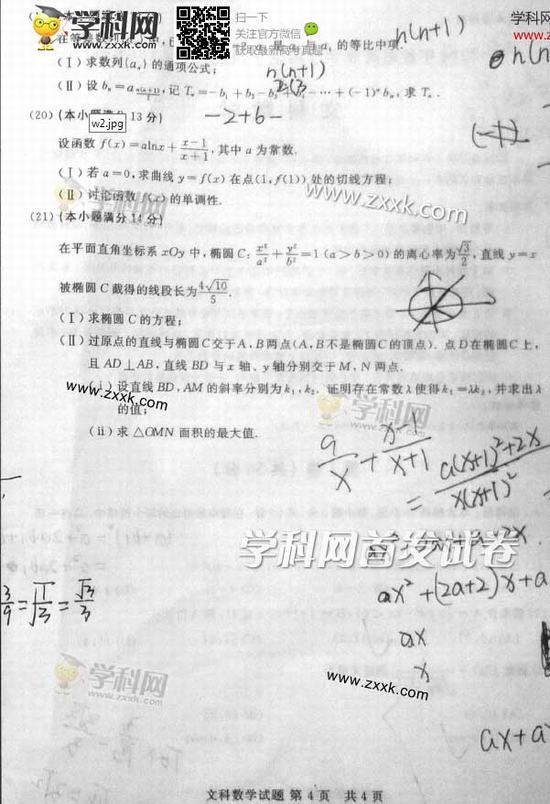 学科网
www.zxxk.com
扫一下
关注官方微信
获取最新高考真题
n(n+1)
学科网
www.zxxk.com
的等比中项.
(Ⅰ)求数列{aₙ}的通项公式;
n(n+1)
记 Tₙ=-b₁+b₂-b₃
+…+(-1)ⁿbₙ,求 Tₙ.
(20)(本小题满分 13 分)
w2.jpg
-2+6-
设函数 f(x)=alnx+(x-1)/(x+1),其中 a 为常数.
(Ⅰ)若 a=0,求曲线 y=f(x)在点(1,f(1))处的切线方程;
www.zxxk.com
(Ⅱ)讨论函数 f(x)的单调性.
(21)(本小题满分 14 分)
在平面直角坐标系 xOy 中,椭圆 C:x²/a²+y²/b²=1(a>b>0)的离心率为√3/2,直线 y=x
被椭圆 C 截得的线段长为4√10/5.
(Ⅰ)求椭圆 C 的方程;
(Ⅱ)过原点的直线与椭圆 C 交于 A,B 两点(A,B 不是椭圆 C 的顶点).点 D 在椭圆 C 上,
且 AD⊥AB,直线 BD 与 x 轴、y 轴分别交于 M,N 两点.
www.zxxk.com
(i)设直线 BD,AM 的斜率分别为 k₁,k₂.证明存在常数 λ 使得 k₁=λk₂,并求出 λ
的值;
学科网
(ii)求 △OMN 面积的最大值.
a/x+
= (a(x+1)²+2x)/(x(x+1)²)
学科网首发试卷
ax²+(2a+2)x+a
3/9=√1/3=√3/3
ax
x
学科网
www.zxxk.com
www.zxxk.com
文科数学试题 第 4 页 共 4 页